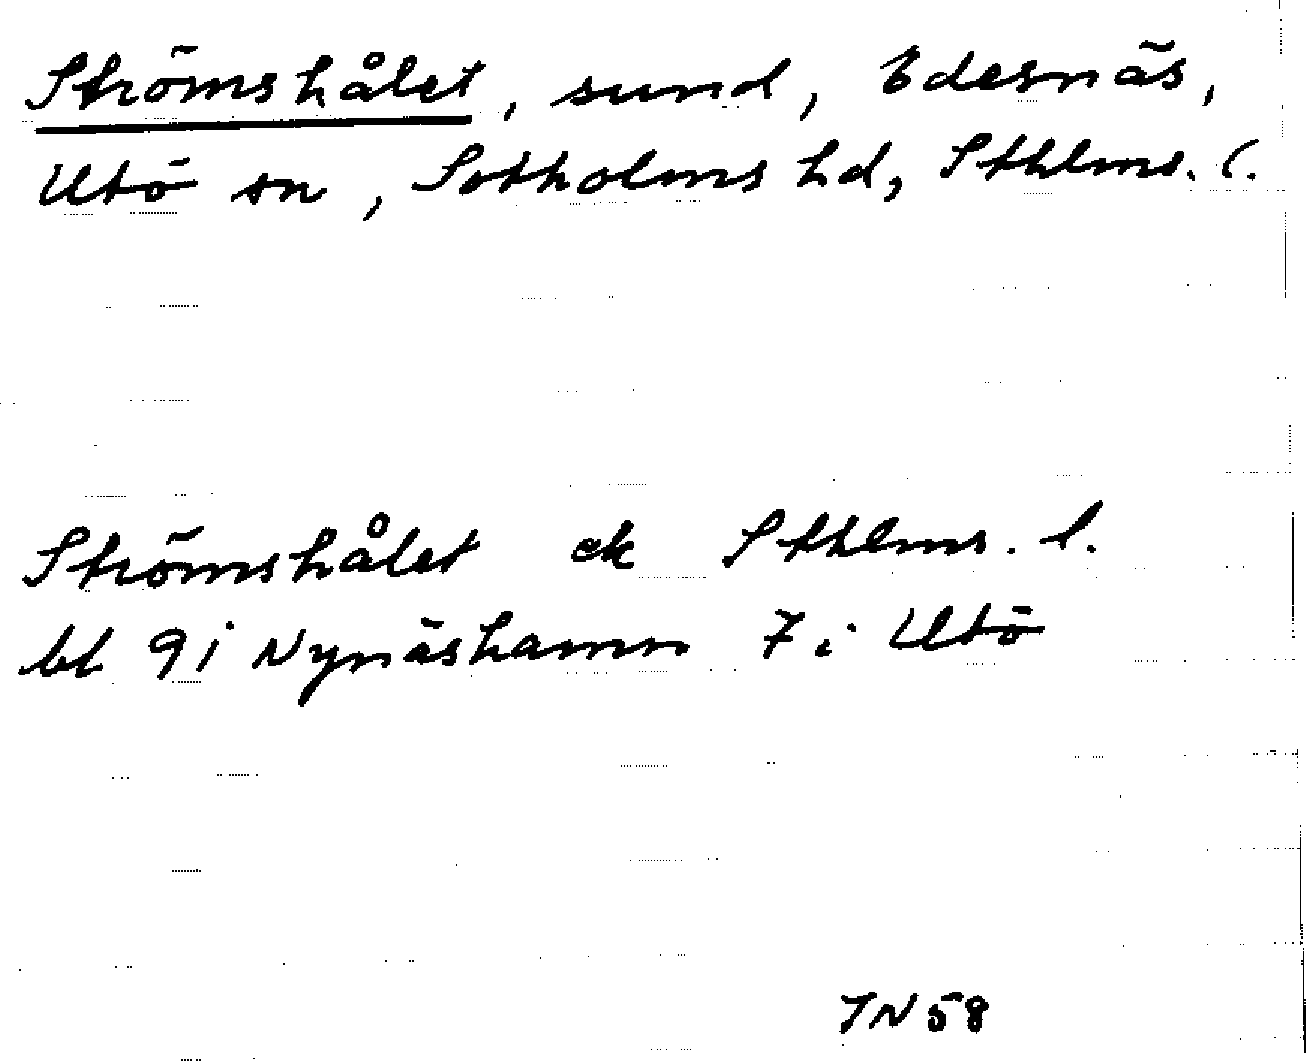 Strömshålet, sund, Edesnäs,
Utö sn, Sotholms hd, Sthlms. l.
Strömshålet ek Sthlms. l.
bl 91 Nynäshamn 7i Utö
IN 58